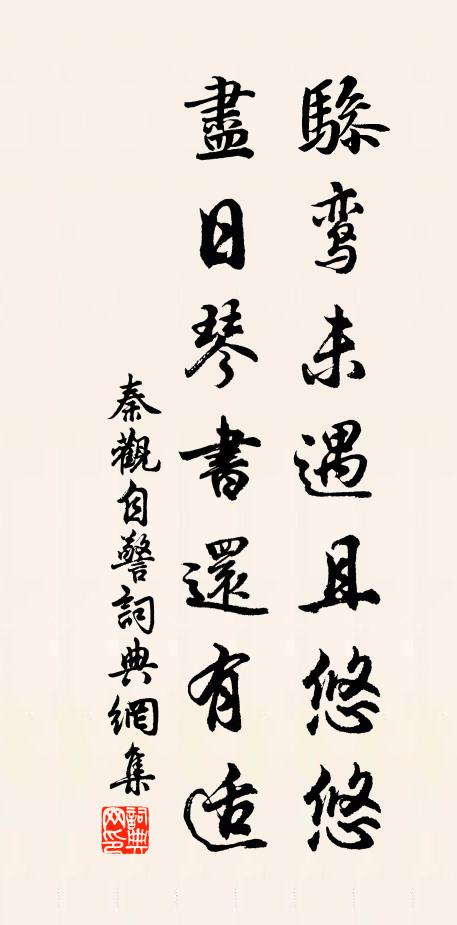 驂鸾未遇且悠悠
盡日琴書還有适
秦觀自警詞典網集
詞典網印